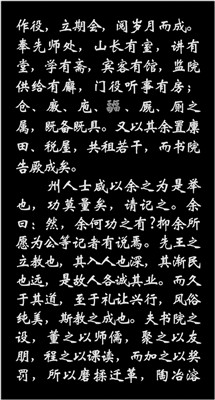 作役，立期会，阅岁月而成。
奉先师处，山长有室，讲有
堂，学有斋，宾客有馆，监院
供给有廨，门役听事有房；
仓、廒、庖、厩、厕之
属，既备既具。又以其余置廪
田、税屋，共租若干，而书院
告厥成矣。
州人士咸以余之为是举
也，功莫量矣，请记之。余
曰：然，余何功之有？抑余所
愿为公等记者有说焉。先王之
立教也，其入人也深，其渐民
也远，是故人各诚其业。而久
于其道，至于礼让兴行，风俗
纯美，斯教之成也。夫书院之
设，董之以师儒，聚之以友
朋，程之以课读，而加之以奖
罚，所以磨揉迁革，陶冶溶